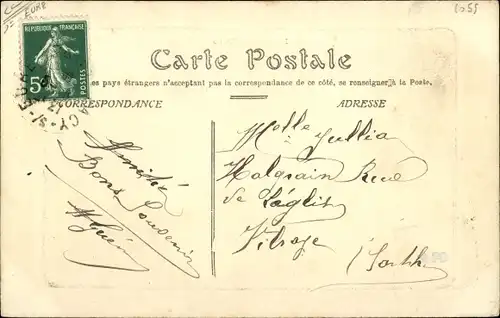 EURE
2055
RÉPUBLIQUE FRANÇAISE
5c
POSTES
Carte Postale
es pays étrangers n'acceptant pas la correspondance de ce côté, se renseigner à la Poste.
CORRESPONDANCE
ADRESSE
Amitié
Bons Souvenir
Melle Jullia
Malgrain Rue
de l'église